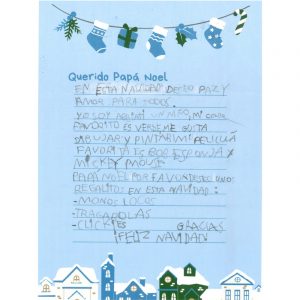 Querido Papá Noel
EN ESTA NAVIDAD DECEO PAZ Y
AMOR PARA TODOS.
YO SOY UN NIÑO, MI COLOR
FAVORITO ES VERDE ME GUSTA
DIBUJAR Y PINTAR MI PELICULA
FAVORITA ES BOB ESPONJA Y
MICKEY MOUSE
PAPÁ NOEL POR FAVOR DESEO UNOS
REGALITOS EN ESTA NAVIDAD:
-MONOS LOCOS
-TRAGABOLAS
-CLICKES GRACIAS
¡FELIZ NAVIDAD!